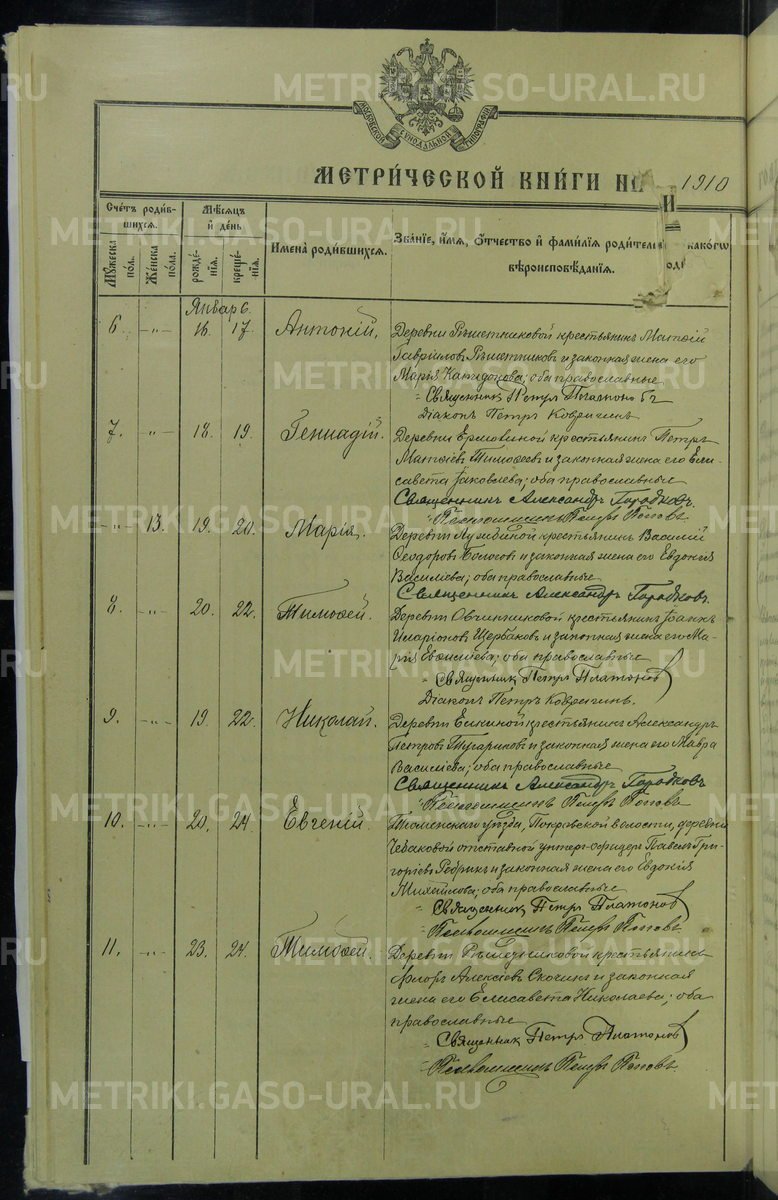 МОСКОВСКОЙ СѴНОДАЛЬНОЙ ТИПОГРАФІИ
МЕТРИ́ЧЕСКОЙ КНИ́ГИ НА 1910
Счетъ роди́в-
шихся.
Мѣсяцъ
и́ де́нь
Имена̀ роди́вшихся.
Зва́ніе, и́мя, о́тчество и́ фами́лія роди́телей, и́ како́гѡ
вѣроисповѣ́данія.
Му́жеска
по́л.
Же́нска
по́ла.
рожде́-
нія.
креще́-
нія.
Январь.
6. -„- 16. 17. Антоній.
Деревни Рѣшетниковой крестьянинъ Матѳій
Гавріиловъ Рѣшетниковъ и законная жена его
Марія Каллидонова; оба православные
Священникъ Петръ Платоновъ
Діаконъ Петръ Ковригинъ
7. -„- 18. 19. Геннадій.
Деревни крестьянинъ Петръ
Матѳіевъ Тимоѳеевъ и законная жена его Ели-
савета Іаковлева; оба православные
Священникъ Александръ Городковъ
Псаломщикъ Петръ Поповъ
-„- 13. 19. 20. Марія.
Деревни крестьянинъ Василій
Ѳеодоровъ и законная жена его Евдокія
Василіева; оба православные
Священникъ Александръ Городковъ
8. -„- 20. 22. Тимоѳей.
Деревни Овчинниковой крестьянинъ Іоаннъ
Иларіоновъ Щербаковъ и законная жена его Ма-
рія; оба православные
Священникъ Петръ Платоновъ
Діаконъ Петръ Ковригинъ.
9. -„- 19. 22. Николай.
Деревни Елкиной крестьянинъ Александръ
Петровъ и законная жена его Мавра
Василіева; оба православные
Священникъ Александръ Городковъ
Псаломщикъ Петръ Поповъ
10. -„- 20. 24. Евгеній.
Тюменскаго уѣзда, Покровской волости, деревни
Чебаковой отставной унтеръ-офицеръ Павелъ Гри-
горіевъ и законная жена его Евдокія
Михайлова; оба православные
Священникъ Петръ Платоновъ
Псаломщикъ Петръ Поповъ
11. -„- 23. 24. Тимоѳей.
Деревни Рѣшетниковой крестьянинъ
Флоръ Алексіевъ и законная
жена его Елисавета Николаева; оба
православные
Священникъ Петръ Платоновъ
Псаломщикъ Петръ Поповъ.
METRIKI.GASO-URAL.RU